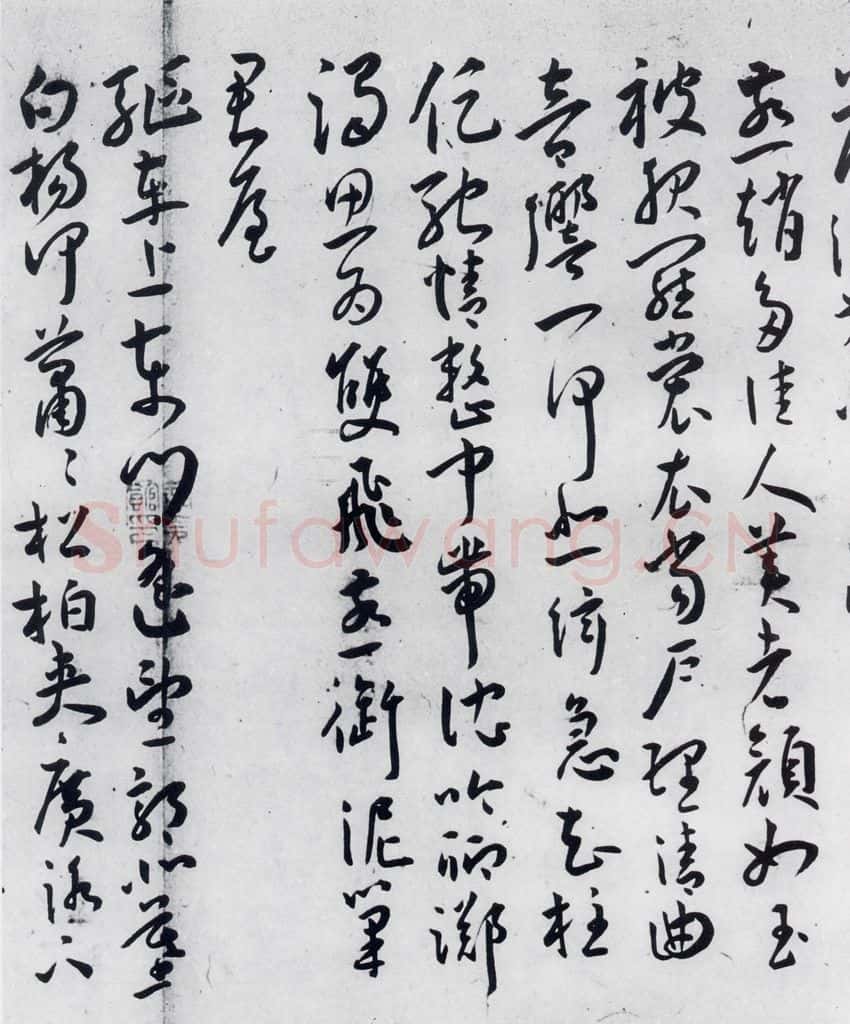 燕趙多佳人美者顏如玉
被服羅裳衣當戶理清曲
音響一何悲絃急知柱
促馳情整中帶沈吟聊躑
躅思為雙飛燕銜泥巢
君屋
驅車上東門遙望郭北墓
白楊何蕭〻松柏夾廣路下
Shufawang.CN